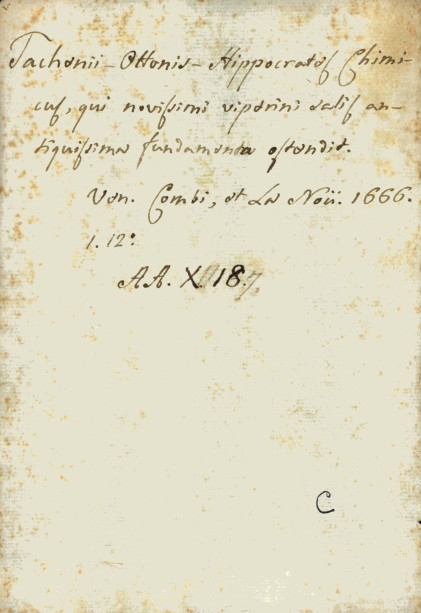 Tachenii - Ottonis - Hippocrates Chimi-
cus, qui novissimi viperini salis an-
tiquissima fundamenta ostendit.
Ven. Combi, et La Noü. 1666.
1. 12°
AA. X. 18.
C